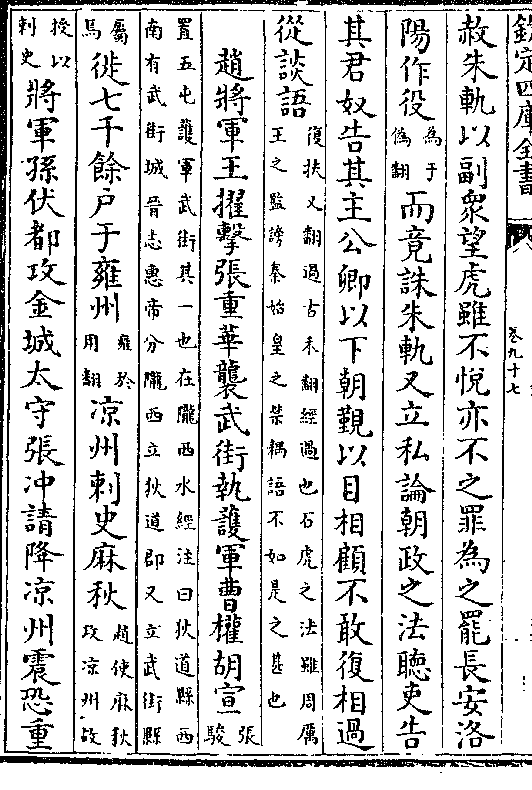 欽定四庫全書
卷九十七
赦朱軌以副衆望虎雖不悅亦不之罪為之罷長安洛
陽作役為于偽翻而竟誅朱軌又立私論朝政之法聽吏告
其君奴告其主公卿以下朝覲以目相顧不敢復相過
從談語復扶又翻過古禾翻經過也石虎之法雖周厲王之監謗秦始皇之禁耦語不如是之甚也
趙將軍王擢擊張重華襲武街執護軍曹權胡宣張駿
置五屯護軍武街其一也在隴西水經注曰狄道縣西南有武街城晉志惠帝分隴西立狄道郡又立武街縣
屬焉徙七千餘戶于雍州雍於用翻凉州刺史麻秋趙使麻秋攻凉州故
授以刺史將軍孫伏都攻金城太守張冲請降凉州震恐重